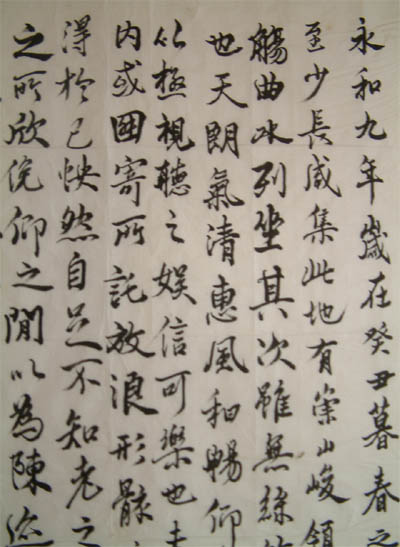 永和九年歲在癸丑暮春之
至少長咸集此地有崇山峻領
觴曲水列坐其次雖無絲竹
也天朗氣清惠風和暢仰
以極視聽之娛信可樂也夫
內或因寄所託放浪形骸
得於己怏然自足不知老之
之所欣俛仰之閒以為陳迹